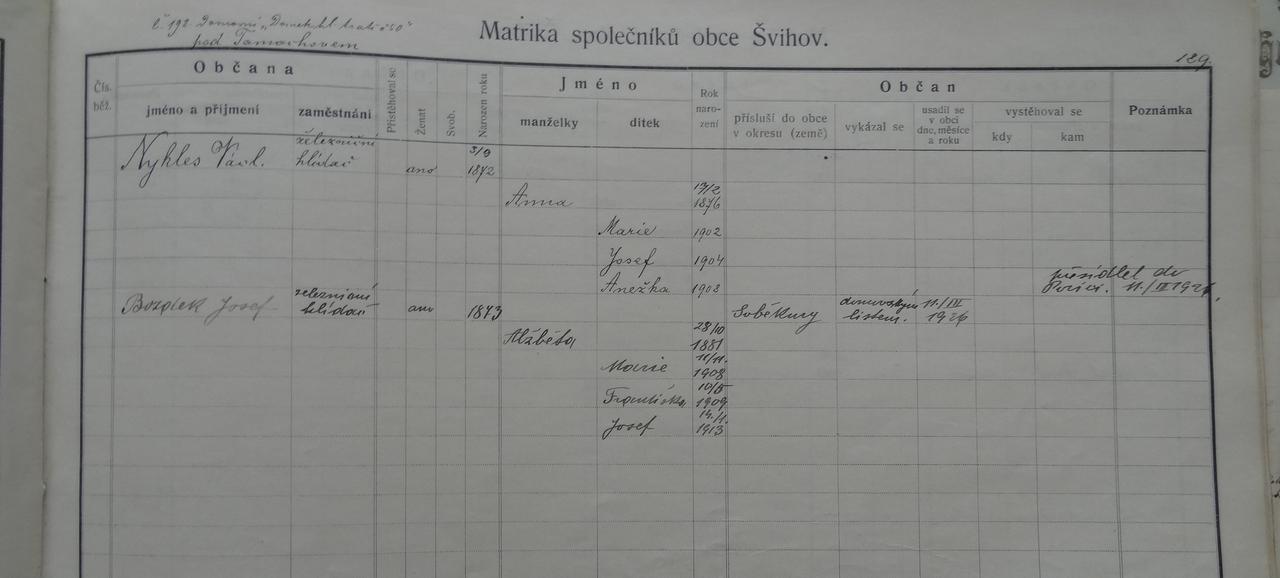 č. 192.
pod
Matrika společníků obce Švihov.
129
Čís. běž.
Občana
jméno a příjmení
zaměstnání
Přistěhoval se
Ženat
Svob.
Narozen roku
Jméno
manželky
dítek
Rok naro- zení
Občan
přísluší do obce v okresu (země)
vykázal se
usadil se v obci dne, měsíce a roku
vystěhoval se
kdy
kam
Poznámka
Nykles Václ. železniční hlídač ano 3/9 1872
Anna 19/2 1876
Marie 1902
Josef 1904
Anežka 1908
do
Bozděk Josef železniční hlídač ano 1873 Soběkury domovským listem. 11./IV 1926
Alžběta 28/10 1881
Marie 11/11. 1908
Františka 10/5 1909
Josef 14./1. 1913